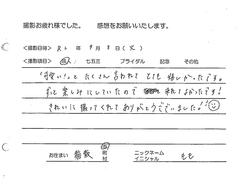 撮影お疲れ様でした。 感想をお願いいたします。
<撮影日時> R6年 9月 8日
<撮影項目> 成人/ 七五三 ブライダル 記念 その他
「可愛い!」と たくさん言われて とても 嬉しかったです。
ずっと楽しみにしていたので
きれいに撮ってくれて ありがとうございました!
お住まい 稲敷 市 町 村 ニックネーム イニシャル もも